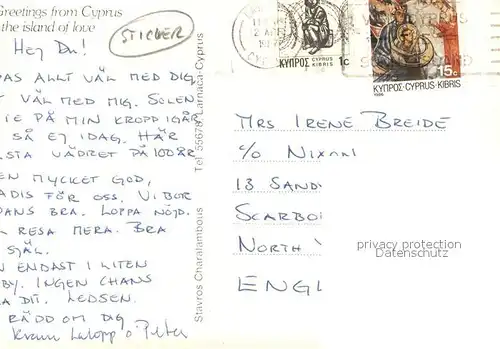 Greetings from Cyprus
the island of love
STICKER
Hey Du!
AS ALLT VÄL MED DIG
VÄL MED MIG. SOLEN
PÅ MIN KROPP IGÅR
SÅ EJ IDAG. HÄR
STA VÄDRET PÅ 100 ÅR
EN MYCKET GOD,
ADIS FÖR OSS. VI BOR
ANS BRA. LOPPA NÖJD.
RESA MERA. BRA
SJÄL.
ENDAST I LITEN
BY. INGEN CHANS
DIT. LEDSEN.
RÄDD OM DIG
Kram Lalopp o Peter
Stavros Charalambous Tel. 55678, Larnaca-Cyprus
ΚΥΠΡΟΣ CYPRUS KIBRIS 1c
15c
ΚΥΠΡΟΣ-CYPRUS-KIBRIS
MRS IRENE BREIDE
c/o NIXON
13 SAND
SCARBO
NORTH Y
ENGL
privacy protection
Datenschutz